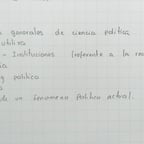 generales de ciencia política
utiliza
- Instituciones (referente a la re
político
de un fenomeno político actual.